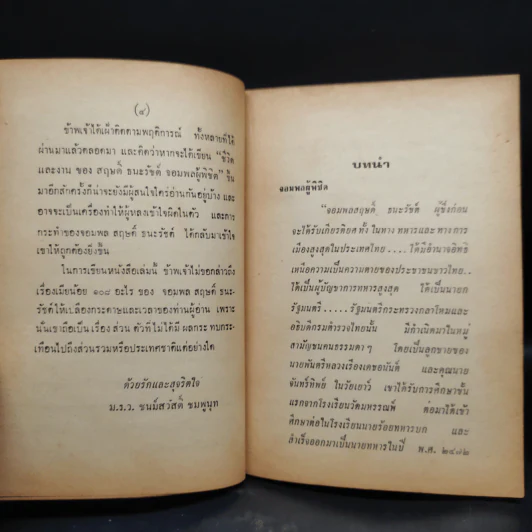 (๔)
ข้าพเจ้าได้เฝ้าติดตามพฤติการณ์ ทั้งหลายที่ได้
ผ่านมาแล้วตลอดมา และคิดว่าหากจะได้เขียน “ชีวิต
และงาน ของ สฤษดิ์ ธนะรัชต์ จอมพลผู้พิชิต” ขึ้น
มาอีกสักครั้งก็น่าจะยังมีผู้สนใจใคร่อ่านกันอยู่บ้าง และ
อาจจะเป็นเครื่องทำให้ผู้หลงเข้าใจผิดในตัว และการ
กระทำของจอมพล สฤษดิ์ ธนะรัชต์ ได้กลับมาเข้าใจ
เขาให้ถูกต้องยิ่งขึ้น
ในการเขียนหนังสือเล่มนี้ ข้าพเจ้าไม่ขอกล่าวถึง
เรื่องเมียน้อย ๑๐๘ อะไร ของ จอมพล สฤษดิ์ ธนะ-
รัชต์ให้เปลืองกระดาษและเวลาของท่านผู้อ่าน เพราะ
นั่นเขาถือเป็น เรื่อง ส่วน ตัวที่ ไม่ได้ มี ผลกระ ทบกระ-
เทือนไปถึงส่วนรวมหรือประเทศชาติแต่อย่างใด
ด้วยรักและสุจริตใจ
ม.ร.ว. ชนม์สวัสดิ์ ชมพูนุท
บทนำ
จอมพลผู้พิชิต
“จอมพลสฤษดิ์ ธนะรัชต์ ผู้ซึ่งก่อน
จะได้รับเกียรติยศ ทั้ง ในทาง ทหารและ ทาง การ
เมืองสูงสุดในประเทศไทย .... ได้มีอำนาจอิทธิ
เหนือความเป็นความตายของประชาชนชาวไทย..
ได้เป็นผู้บัญชาการทหารสูงสุด ได้เป็นนายก
รัฐมนตรี ..... รัฐมนตรีกระทรวงกลาโหมและ
อธิบดีกรมตำรวจไทยนั้น มีกำเนิดมาในหมู่
สามัญชนคนธรรมดา ๆ โดยเป็นลูกชายของ
นายพันตรีหลวงเรืองเดชอนันต์ และคุณนาย
จันทร์ทิพย์ ในวัยเยาว์ เขาได้รับการศึกษาชั้น
แรกจากโรงเรียนวัดมหรรณพ์ ต่อมาได้เข้า
ศึกษาต่อในโรงเรียนนายร้อยทหารบก และ
สำเร็จออกมาเป็นนายทหารในปี พ.ศ. ๒๔๗๒